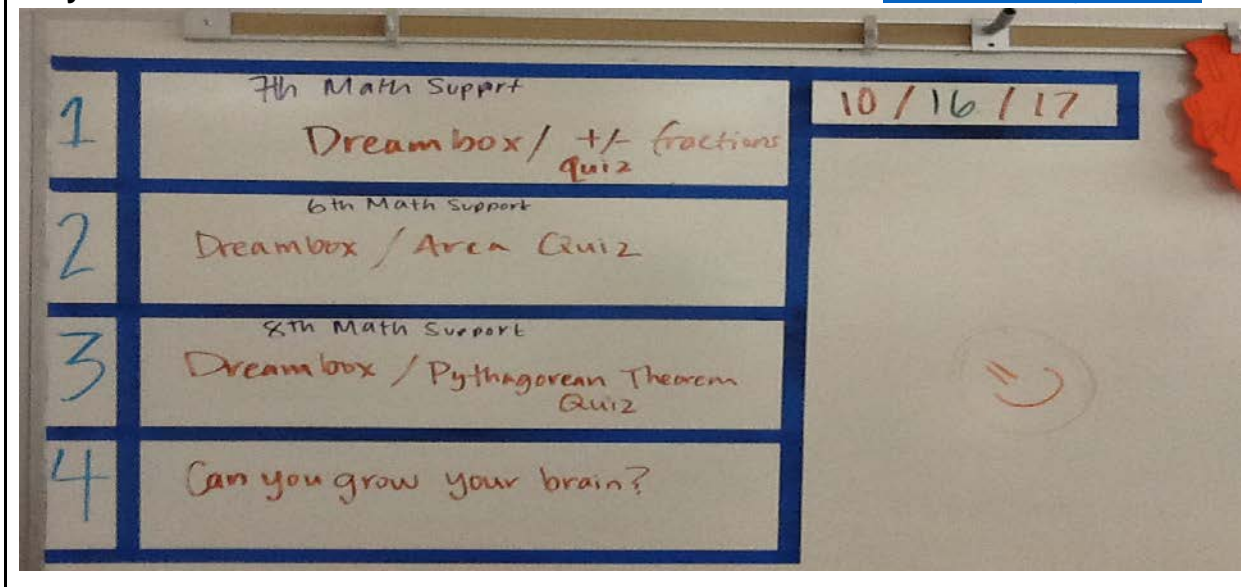 10 / 16 / 17
1
7th Math Support
Dreambox / +/- fractions
quiz
2
6th Math Support
Dreambox / Area Quiz
3
8th Math Support
Dreambox / Pythagorean Theorem
Quiz
4
Can you grow your brain?